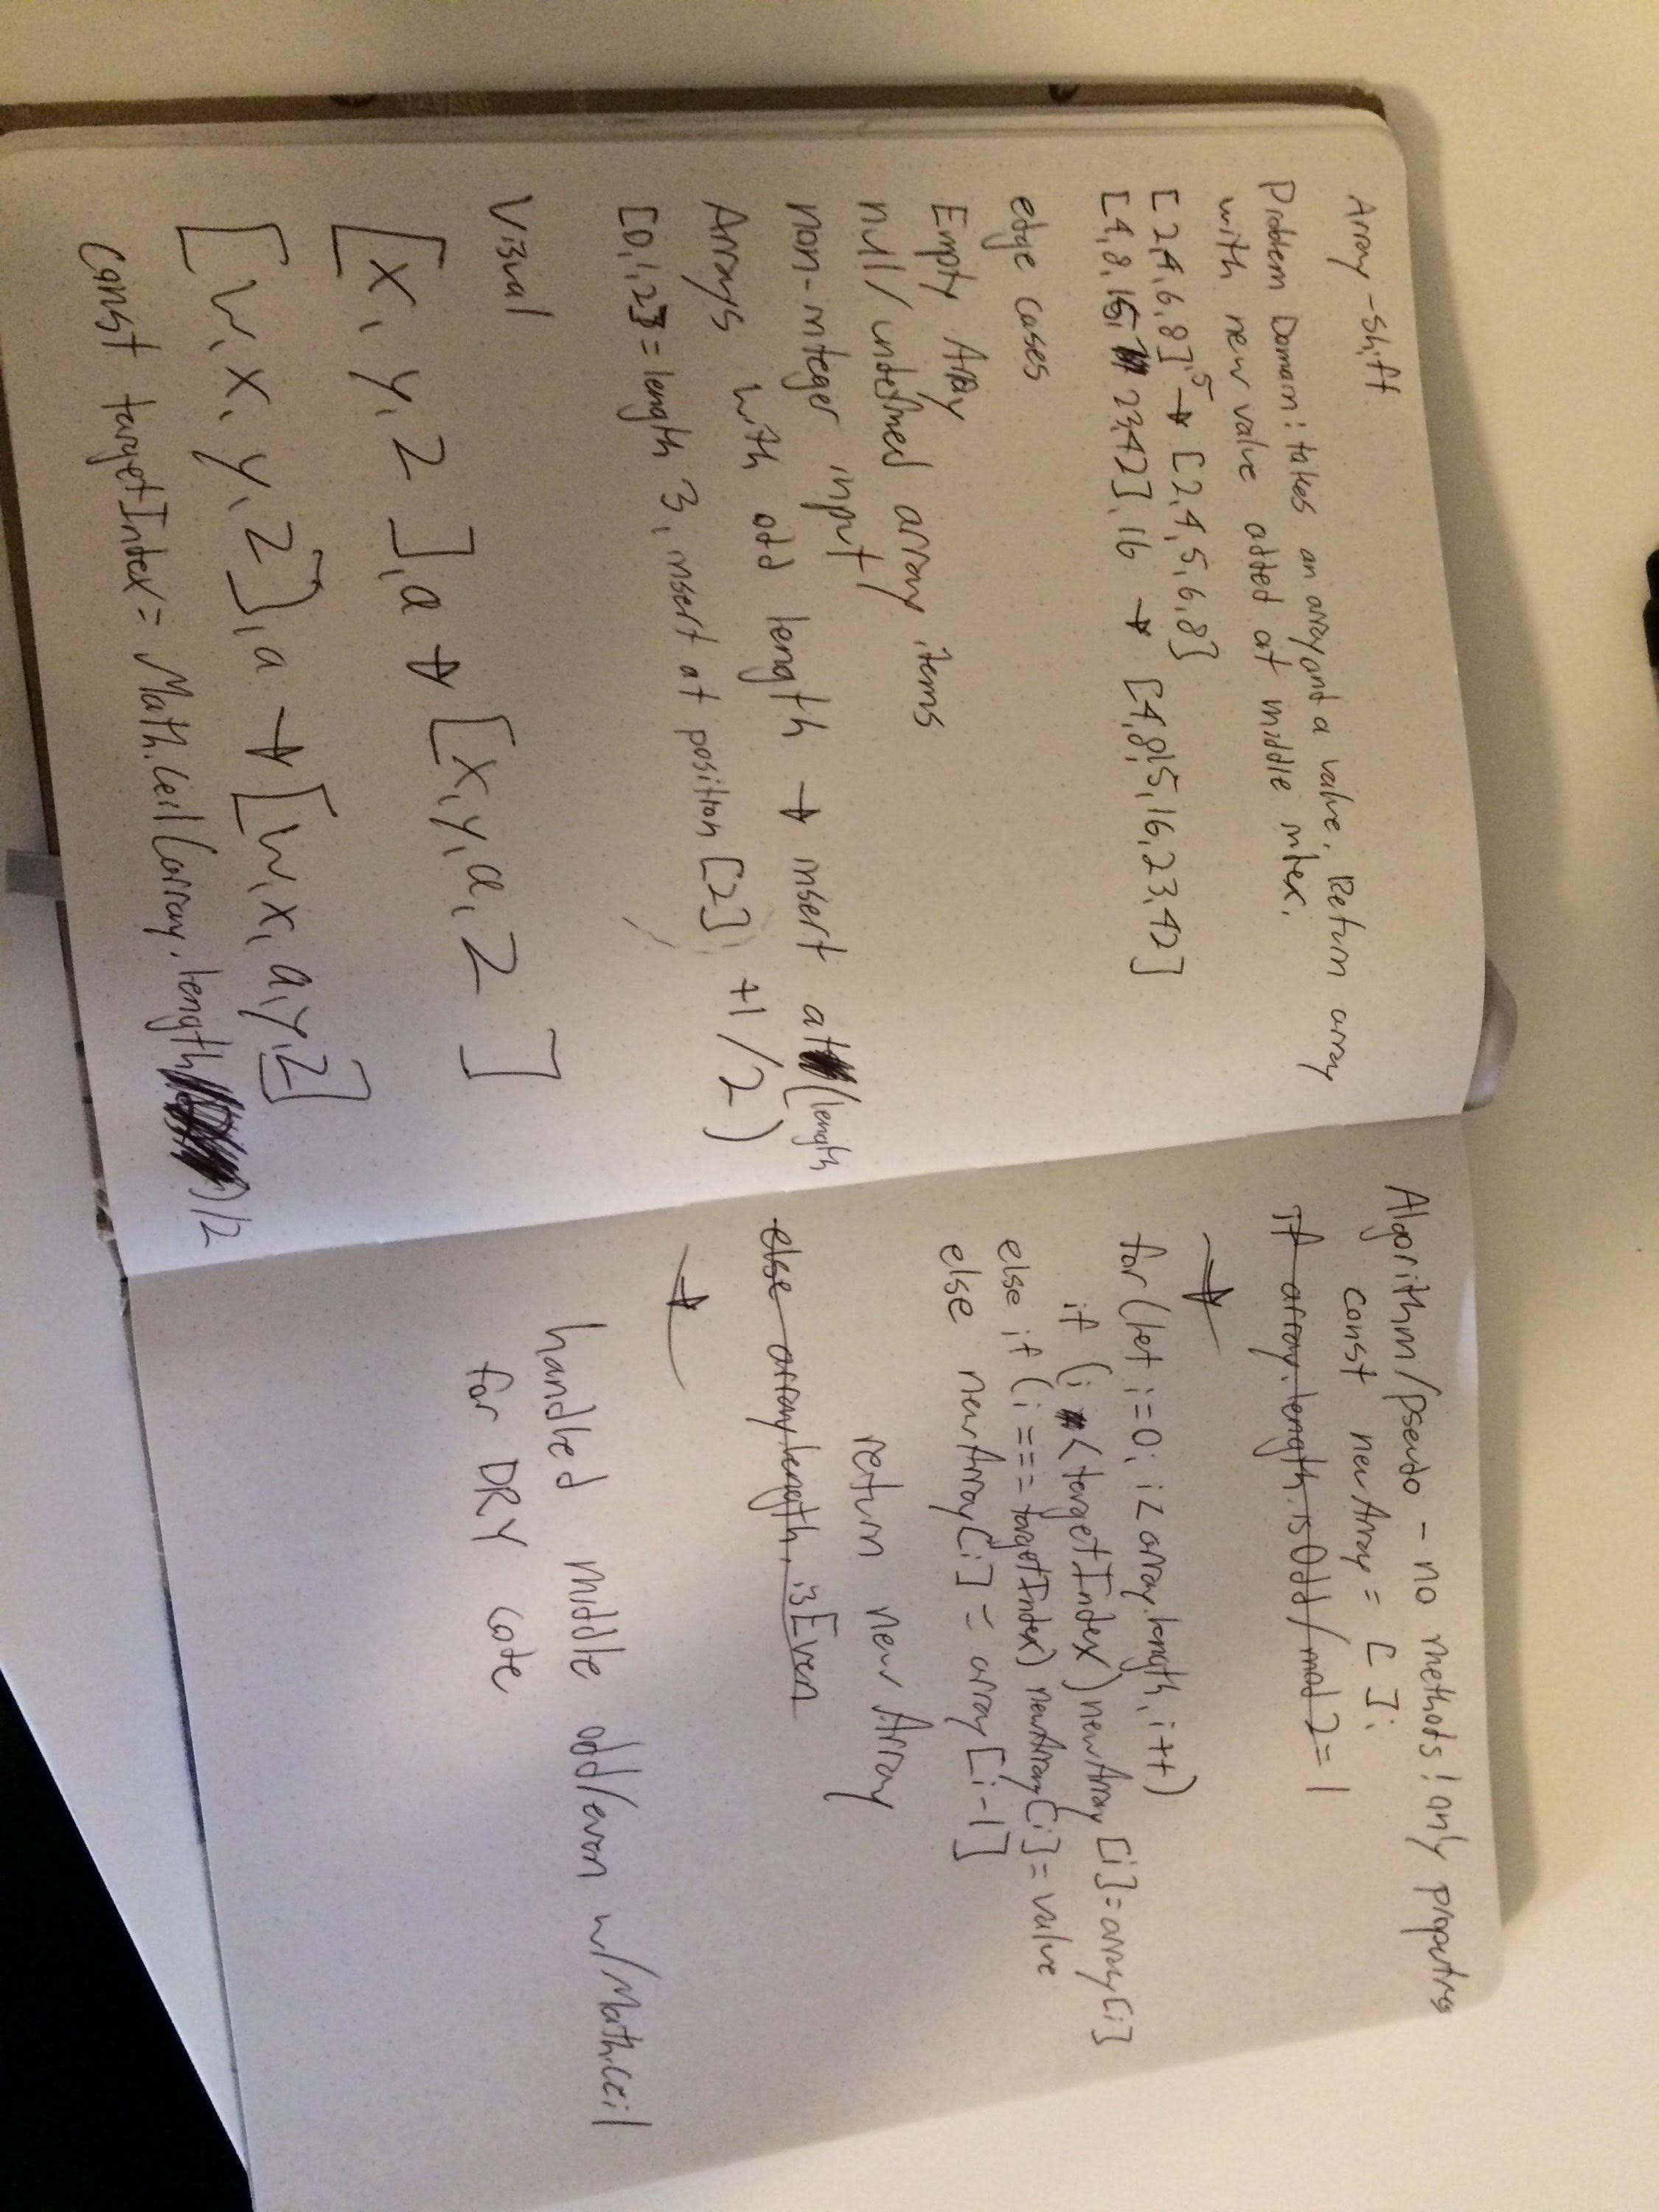 Array-shift
Problem Domain: takes an array and a value. Return array
with new value added at middle index.
[2,4,6,8],5 → [2,4,5,6,8]
[4,8,15, 23,42],16 → [4,8,15,16,23,42]
edge cases
Empty Array
null/undefined array items
non-integer input
Arrays with odd length → insert at (length
+1/2)
[0,1,2] = length 3, insert at position [2]
Visual
[x, y, z], a → [x, y, a, z]
[w, x, y, z], a → [w, x, a, y, z]
const targetIndex = Math.ceil(array.length)/2
Algorithm/pseudo - no methods! only properties
const newArray = [];
if array.length.isOdd/mod 2 = 1
→
for(let i=0; i<array.length, i++)
if (i < targetIndex) newArray[i]=array[i]
else if (i === targetIndex) newArray[i]=value
else newArray[i] = array[i-1]
return newArray
else array.length.isEven
→
handled middle odd/even w/Math.ceil
for DRY code